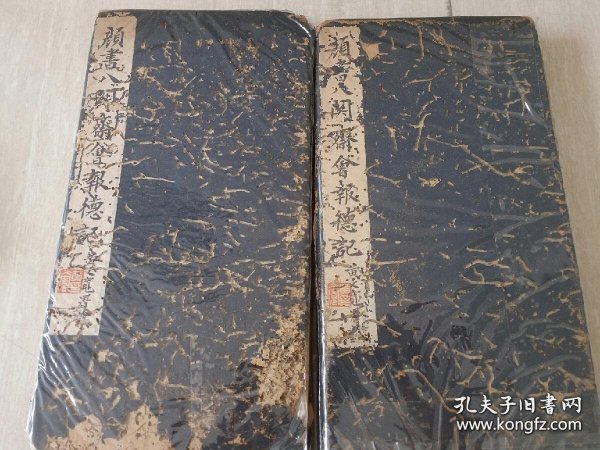 顏書八關齋會報德記
顏書八關齋會報德記
孔夫子旧书网
www.kongfz.com